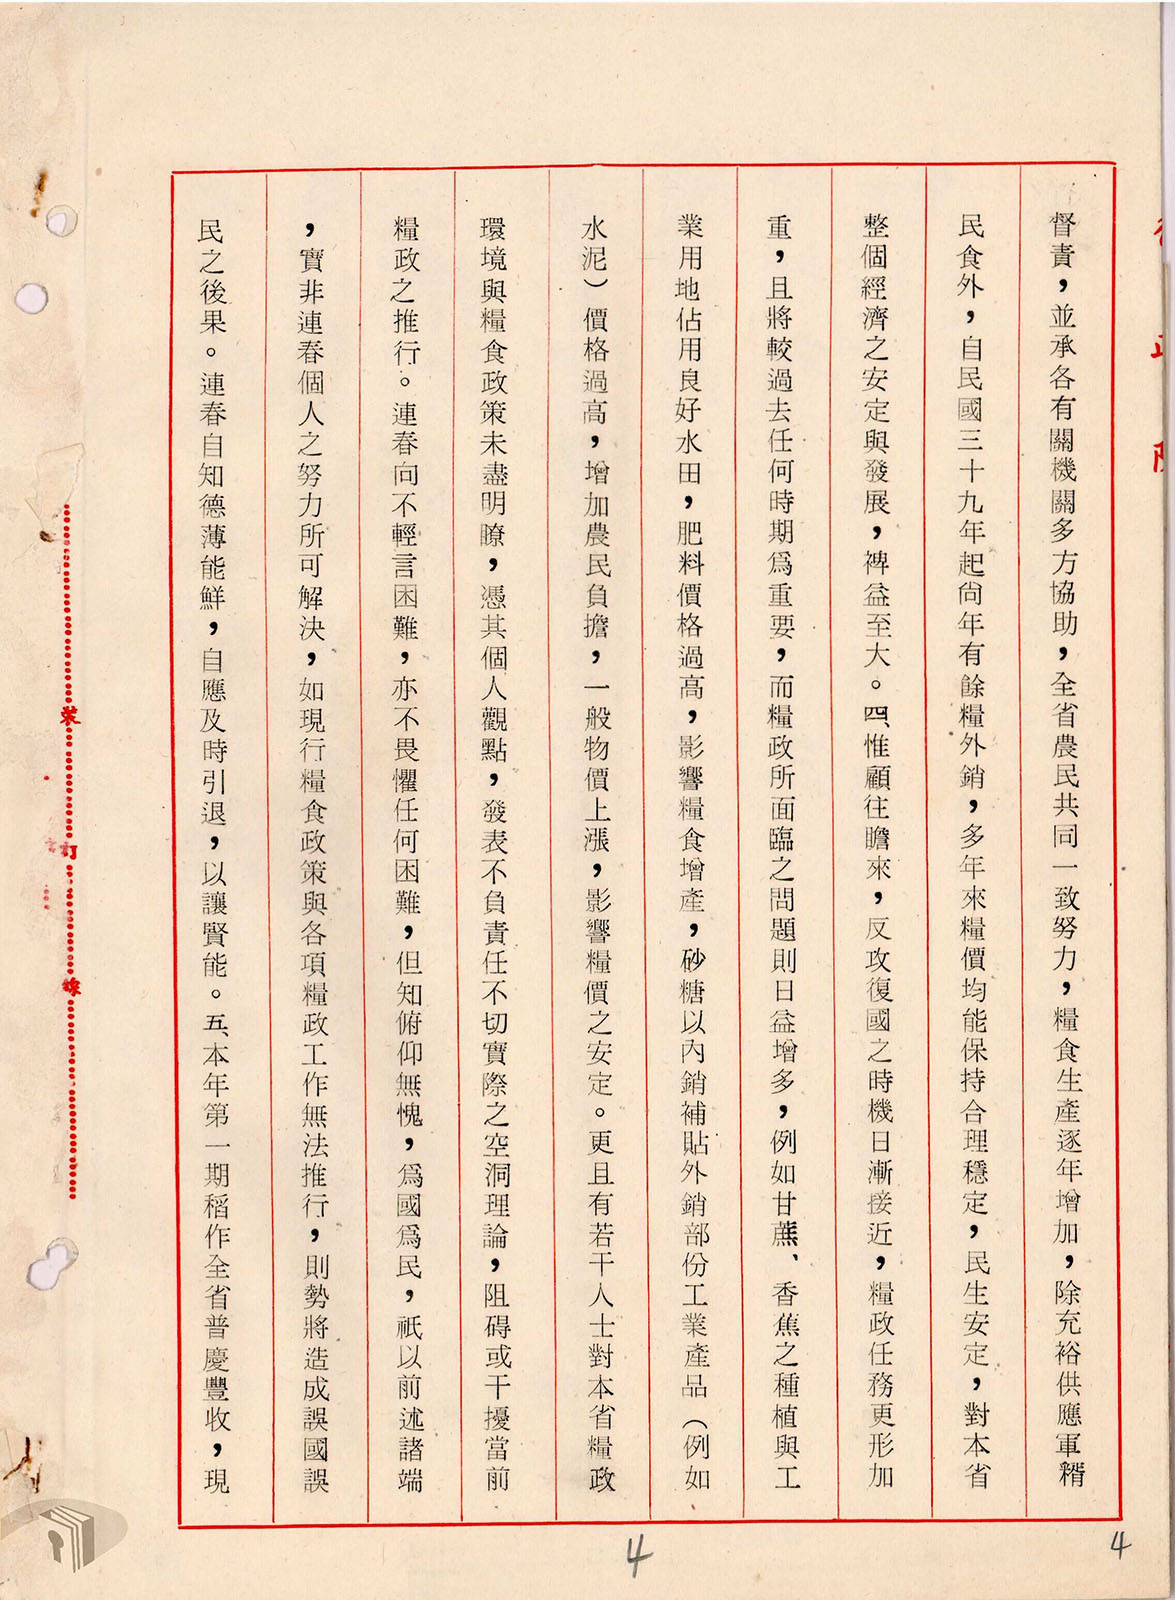 督責，並承各有關機關多方協助，全省農民共同一致努力，糧食生產逐年增加，除充裕供應軍糈
民食外，自民國三十九年起尙年有餘糧外銷，多年來糧價均能保持合理穩定，民生安定，對本省
整個經濟之安定與發展，裨益至大。四、惟顧往瞻來，反攻復國之時機日漸接近，糧政任務更形加
重，且將較過去任何時期爲重要，而糧政所面臨之問題則日益增多，例如甘蔗、香蕉之種植與工
業用地佔用良好水田，肥料價格過高，影響糧食增產，砂糖以內銷補貼外銷部份工業產品（例如
水泥）價格過高，增加農民負擔，一般物價上漲，影響糧價之安定。更且有若干人士對本省糧政
環境與糧食政策未盡明瞭，憑其個人觀點，發表不負責任不切實際之空洞理論，阻碍或干擾當前
糧政之推行。連春向不輕言困難，亦不畏懼任何困難，但知俯仰無愧，爲國爲民，祇以前述諸端
，實非連春個人之努力所可解決，如現行糧食政策與各項糧政工作無法推行，則勢將造成誤國誤
民之後果。連春自知德薄能鮮，自應及時引退，以讓賢能。五、本年第一期稻作全省普慶豐收，現
裝訂線
4
4